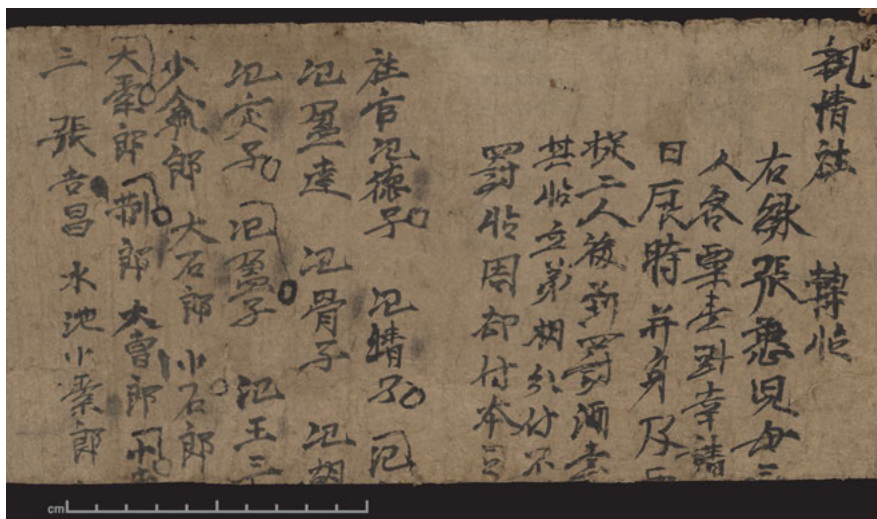 親情社 轉帖
右緣張憨兒母
人各粟壹斗幸請
日辰時并身及
捉二人後到罰酒壹
其帖立弟相分付不
罰帖周却付本
社官氾德子 氾晴子 氾
氾盈達 氾骨子 氾胡
氾定子 氾盈子 氾王三
少郎 大石郎 小石郎
大索郎 荆郎 大曹郎 小
三 張吉昌 水池小索郎
cm